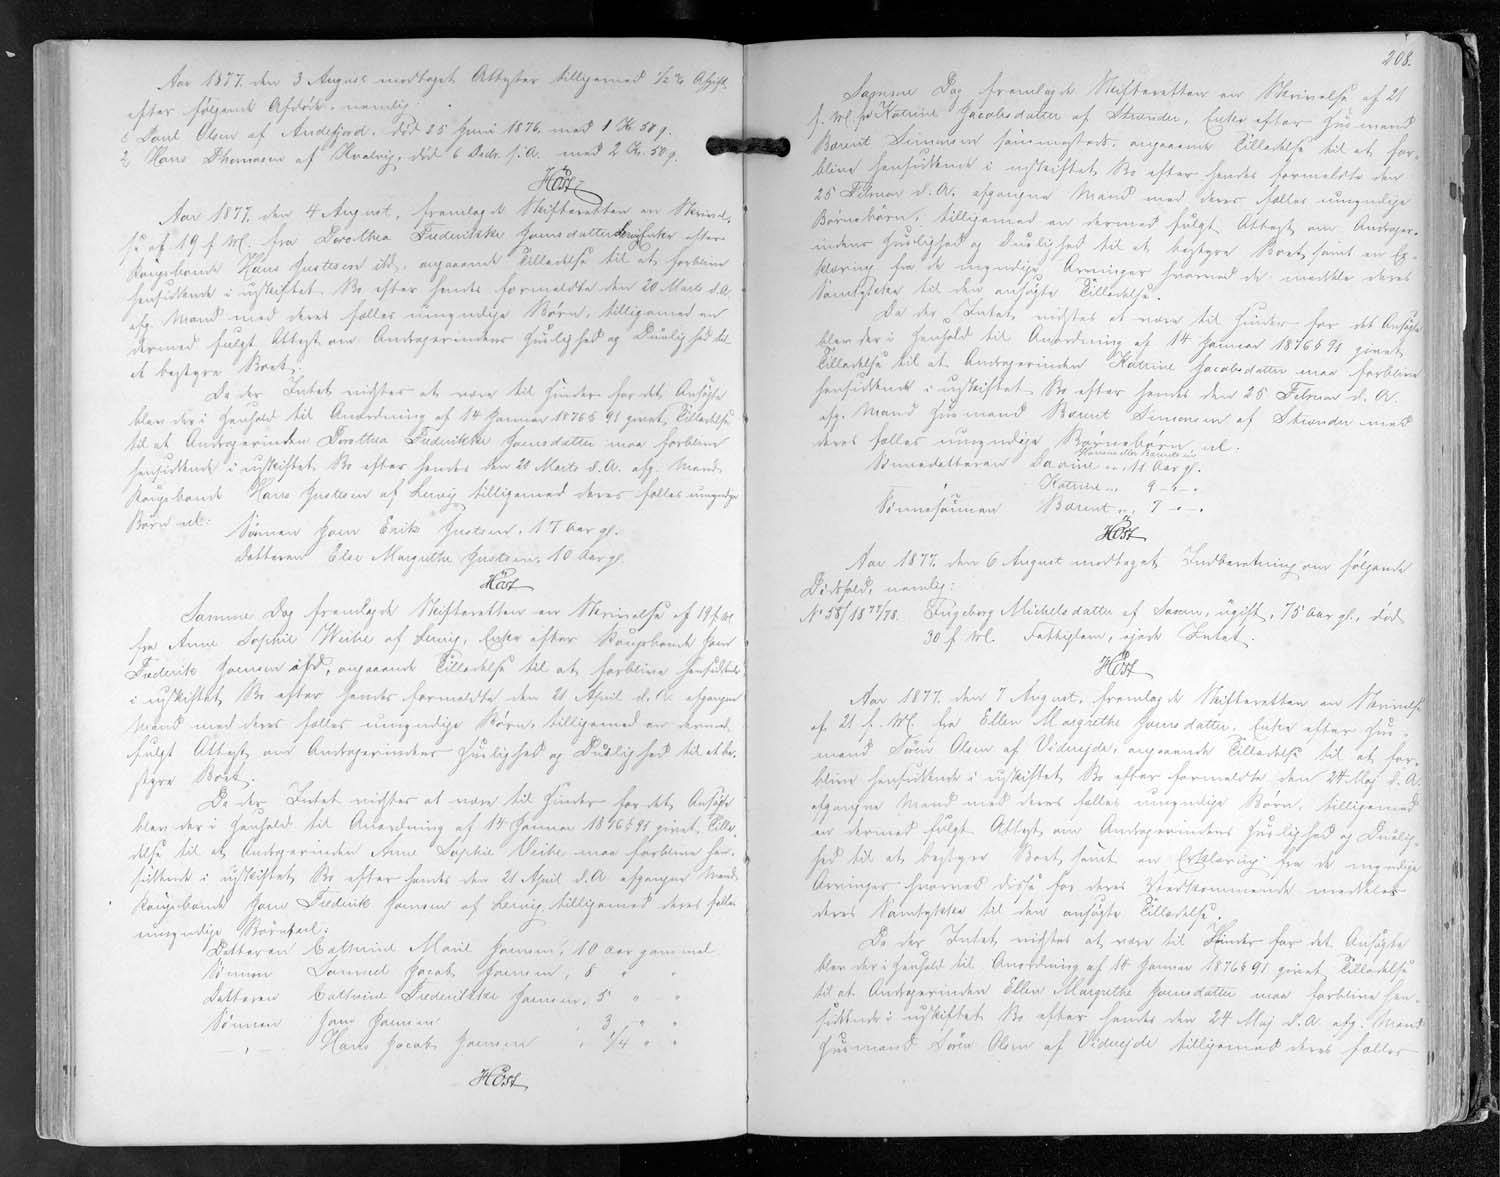 Aar 1877. den 3 August modtaget Attester tilligemed 1/2 % Afgift
efter følgende Afdøde, nemlig:
1, Poul Olsen af Andefjord, død 25 Juni 1876. med 1 Kr. 50 Ø.
2, Hans Thomasen af Kvalvig, død 6 Decbr. f. A. med 2 Kr. 50 Ø.
Höst
Aar 1877. den 4 August, fremlagde Skifteretten en Skrivel-
se af 19 f. M. fra Dorothea Frederikke Joensdatter Enke efter
Kongsbonde Hans Justesen ibd, angaaende Tilladelse til at forblive
hensiddende i uskiftet Bo efter hendes formeldte den 20 Marts d. A.
afg. Mand med deres fælles umyndige Børn, tilligemed en
dermed fulgt Attest om Andragerindens Huslighed og Duelighed til
at bestyre Boet.
Da der Intet vidstes at være til Hinder for det Ansøgte
blev der i Henhold til Anordning af 14 Januar 1876 § 91 givet Tilladelse
til at Andragerinden Dorothea Frederikke Joensdatter maa forblive
hensiddende i uskiftet Bo efter hendes den 20 Marts d. A. afg. Mand
Kongsbonde Hans Justesen af Lervig tilligemed deres fælles umyndige
Børn nl:
Sønnen Joen Erik Justesen, 17 Aar gl.
Datteren Else Margrethe Justesen, 10 Aar gl.
Höst
Samme Dag fremlagde Skifteretten en Skrivelse af 19 f. M.
fra Anne Sophie Weihe af Lervig, Enke efter Kongsbonde Joen
Frederik Joensen ibd, angaaende Tilladelse til at forblive hensiddende
i uskiftet Bo efter hendes formeldte den 21 April d. A. afgangne
Mand med deres fælles umyndige Børn, tilligemed en dermed
fulgt Attest om Andragerindens Huslighed og Duelighed til at be-
styre Boet.
Da der Intet vidstes at være til Hinder for det Ansøgte
blev der i Henhold til Anordning af 14 Januar 1876 § 91 givet Tilla-
delse til at Andragerinden Anne Sophie Weihe maa forblive hen-
siddende i uskiftet Bo efter hendes den 21 April d. A. afgangne Mand
Kongsbonde Joen Frederik Joensen af Lervig tilligemed deres fælles
umyndige Børn nl:
Datteren Cathrine Marie Joensen, 10 Aar gammel.
Sønnen Samuel Jacob Joensen, 8 " "
Datteren Cathrine Frederikke Joensen, 5 " "
Sønnen Joen Joensen 3 " "
— " — Hans Jacob Joensen 1/4 " "
Höst
208.
Samme Dag fremlagde Skifteretten en Skrivelse af 21
f. M. fra Katrine Jacobsdatter af Strænder, Enke efter Husmand
Bærent Simonsen sammesteds, angaaende Tilladelse til at for-
blive hensiddende i uskiftet Bo efter hendes formeldte den
25 Februar d. A. afgangne Mand med deres fælles umyndige
Børnebørn, tilligemed en dermed fulgt Attest om Andrager-
indens Huslighed og Duelighed til at bestyre Boet samt en Er-
klæring fra de myndige Arvinger hvorved de meddele deres
Samtykke til den ansøgte Tilladelse.
Da der Intet vidstes at være til Hinder for det Ansøgte
blev der i Henhold til Anordning af 14 Januar 1876 § 91 givet
Tilladelse til at Andragerinden Katrine Jacobsdatter maa forblive
hensiddende i uskiftet Bo efter hendes den 25 Februar d. A.
afg. Mand Husmand Bærent Simonsen af Strænder med
deres fælles umyndige Børnebørn nl.
Sønnedatteren Davine " 11 Aar gl.
Katrine " 9 - " -
Sønnesønnen Bærent " 7 - " -
Höst
Aar 1877. den 6 August modtaget Indberetning om følgende
Dødsfald, nemlig:
No 58/1877/78. Ingeborg Michelsdatter af Saxen, ugift, 75 Aar gl., død
30 f. M. Fattiglem, ejede Intet.
Höst
Aar 1877. den 7 August, fremlagde Skifteretten en Skrivelse
af 21 f. M. fra Ellen Margrethe Joensdatter, Enke efter Hus-
mand Sören Olsen af Viderejde, angaaende Tilladelse til at for-
blive hensiddende i uskiftet Bo efter formeldte den 24 Maj d. A.
afgangne Mand med deres fælles umyndige Børn, tilligemed
en dermed fulgt Attest om Andragerindens Huslighed og Duelig-
hed til at bestyre Boet samt en Erklæring fra de myndige
Arvinger hvorved disse for deres Vedkommende meddeles
deres Samtykke til den ansøgte Tilladelse.
Da der Intet vidstes at være til Hinder for det Ansøgte
blev der i Henhold til Anordning af 14 Januar 1876 § 91 givet Tilladelse
til at Andragerinden Ellen Margrethe Joensdatter maa forblive hen-
siddende i uskiftet Bo efter hendes den 24 Maj d. A. afg. Mand
Husmand Sören Olsen af Viderejde tilligemed deres fælles